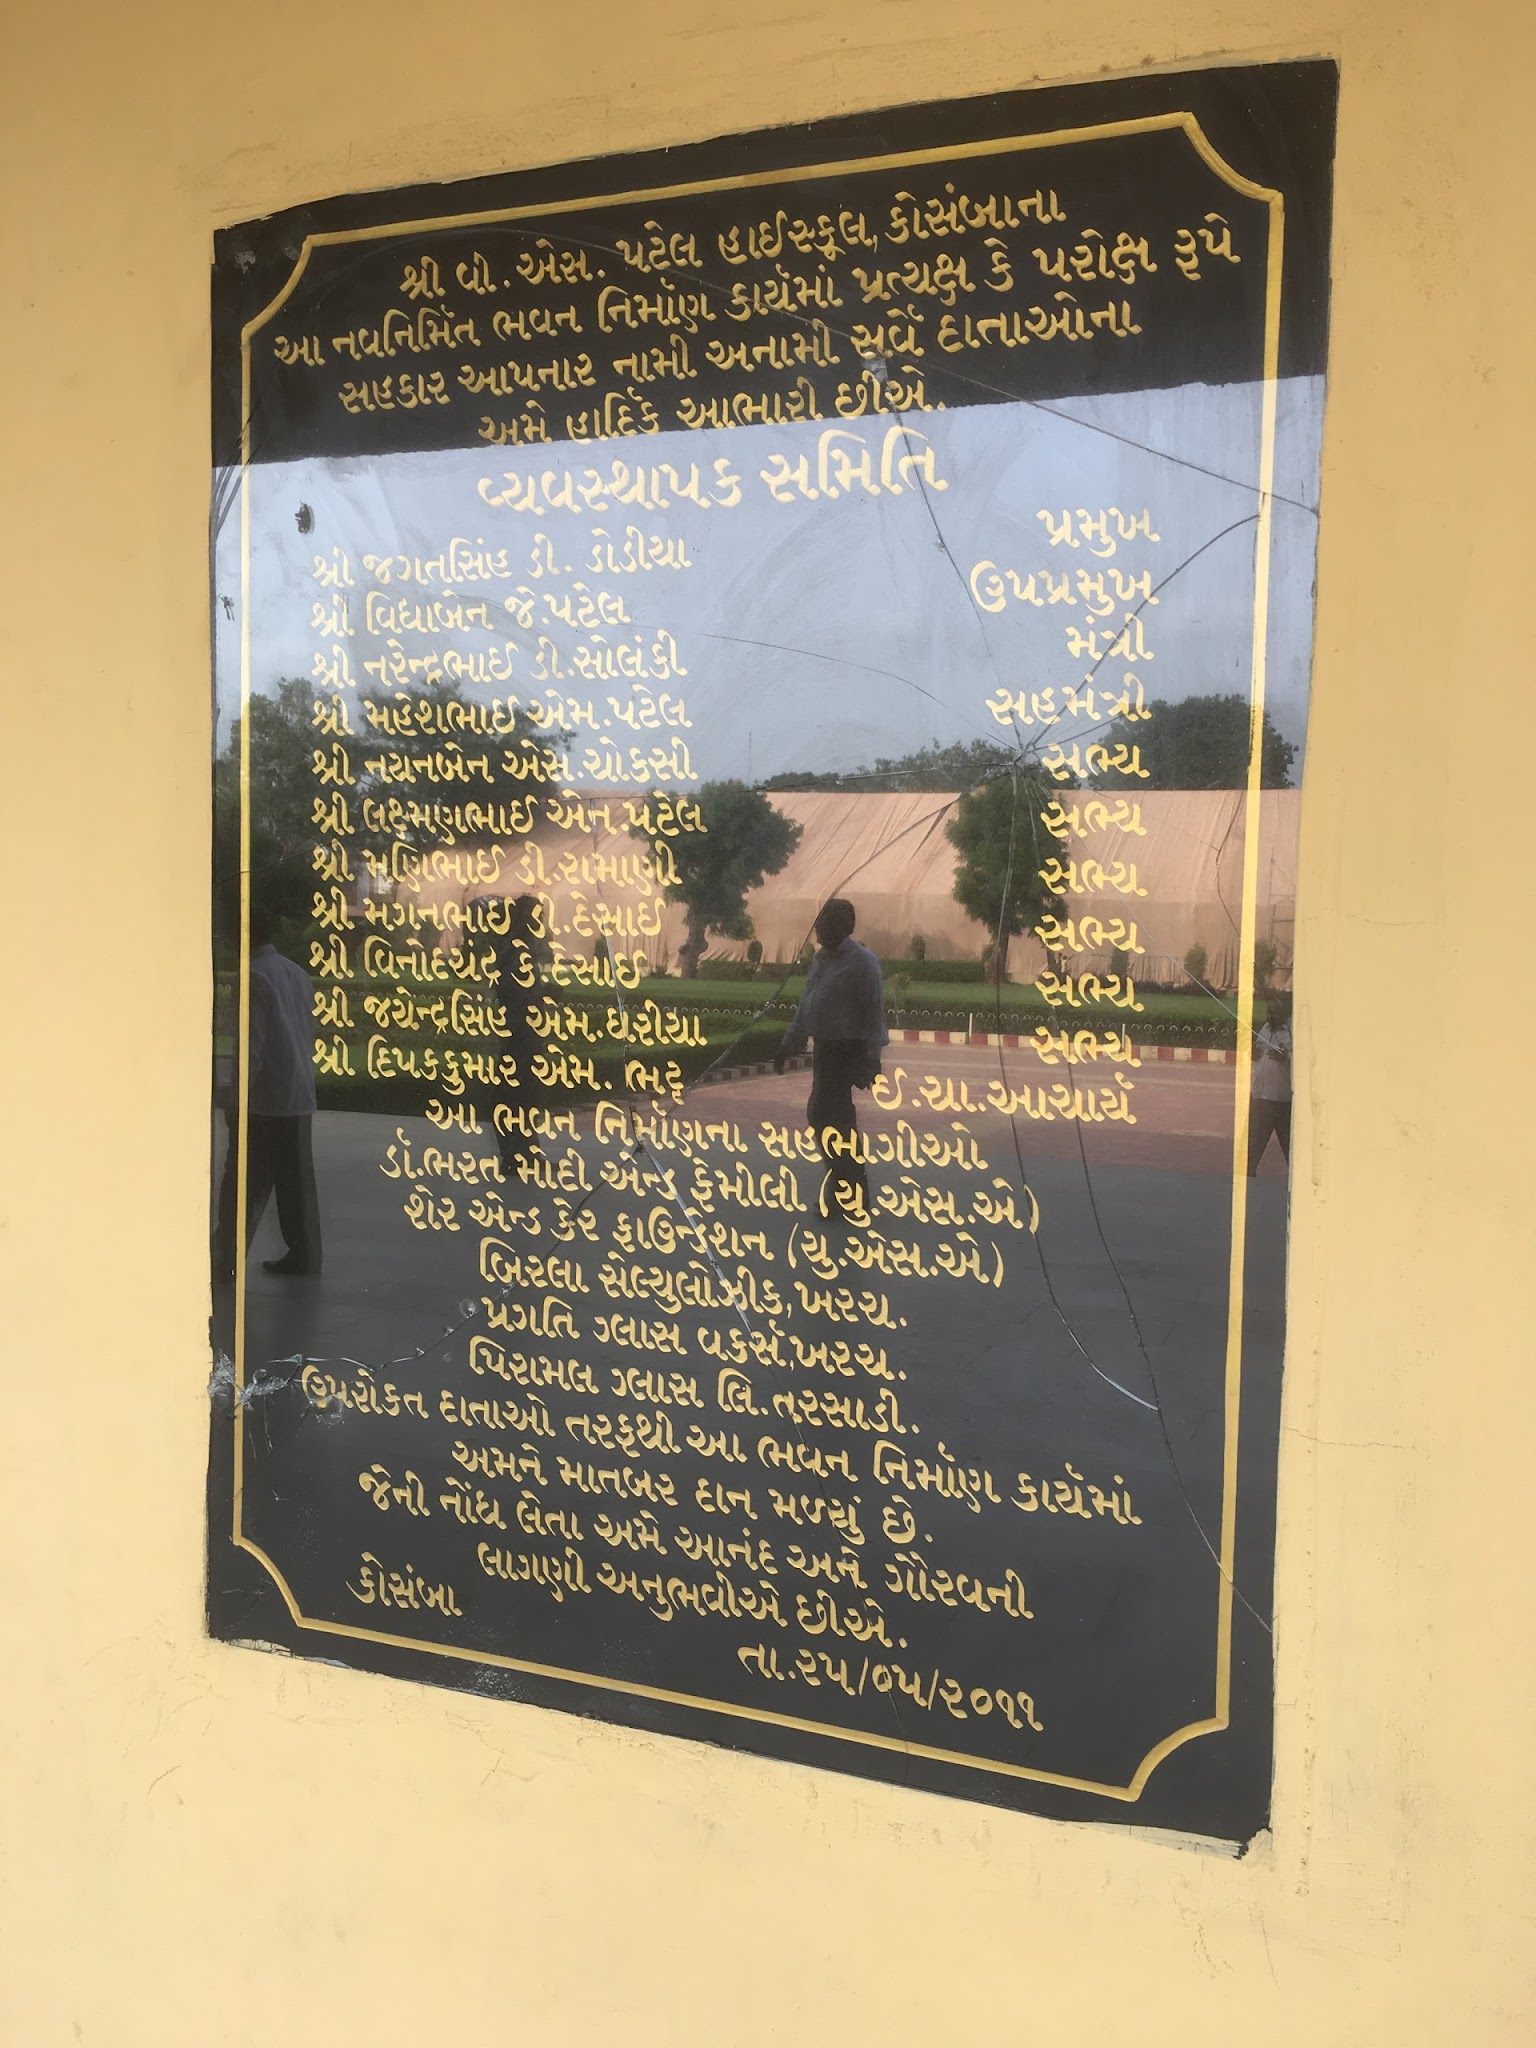 શ્રી વી. એસ. પટેલ હાઈસ્કૂલ, કોસંબાના
આ નવનિર્મિત ભવન નિર્માણ કાર્યમાં પ્રત્યક્ષ કે પરોક્ષ રૂપે
સહકાર આપનાર નામી અનામી સર્વે દાતાઓના
અમે હાર્દિક આભારી છીએ.
વ્યવસ્થાપક સમિતિ
શ્રી જગતસિંહ ડી. ડોડીયા પ્રમુખ
શ્રી વિદ્યાબેન જે. પટેલ ઉપપ્રમુખ
શ્રી નરેન્દ્રભાઈ ડી. સોલંકી મંત્રી
શ્રી મહેશભાઈ એમ. પટેલ સહમંત્રી
શ્રી નયનબેન એસ. ચોકસી સભ્ય
શ્રી લક્ષ્મણભાઈ એન. પટેલ સભ્ય
શ્રી મણિભાઈ ડી. રામાણી સભ્ય
શ્રી મગનભાઈ ડી. દેસાઈ સભ્ય
શ્રી વિનોદચંદ્ર કે. દેસાઈ સભ્ય
શ્રી જયેન્દ્રસિંહ એમ. ઘરીયા સભ્ય
શ્રી દિપકકુમાર એમ. ભટ્ટ ઈ. ચા. આચાર્ય
આ ભવન નિર્માણના સહભાગીઓ
ડૉ. ભરત મોદી એન્ડ ફેમીલી (યુ.એસ.એ)
શેર એન્ડ કેર ફાઉન્ડેશન (યુ.એસ.એ)
બિરલા સેલ્યુલોઝીક, ખરચ.
પ્રગતિ ગ્લાસ વર્કસ, ખરચ.
પિરામલ ગ્લાસ લિ. તરસાડી.
ઉપરોકત દાતાઓ તરફથી આ ભવન નિર્માણ કાર્યમાં
અમને માતબર દાન મળ્યું છે.
જેની નોંધ લેતા અમે આનંદ અને ગૌરવની
લાગણી અનુભવીએ છીએ.
કોસંબા
તા. ૨૫/૦૫/૨૦૧૧